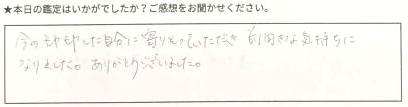 ★本日の鑑定はいかがでしたか？ご感想をお聞かせください。
今の自分に寄りそっていただき 前向きな気持ちに
なりました。ありがとうございました。